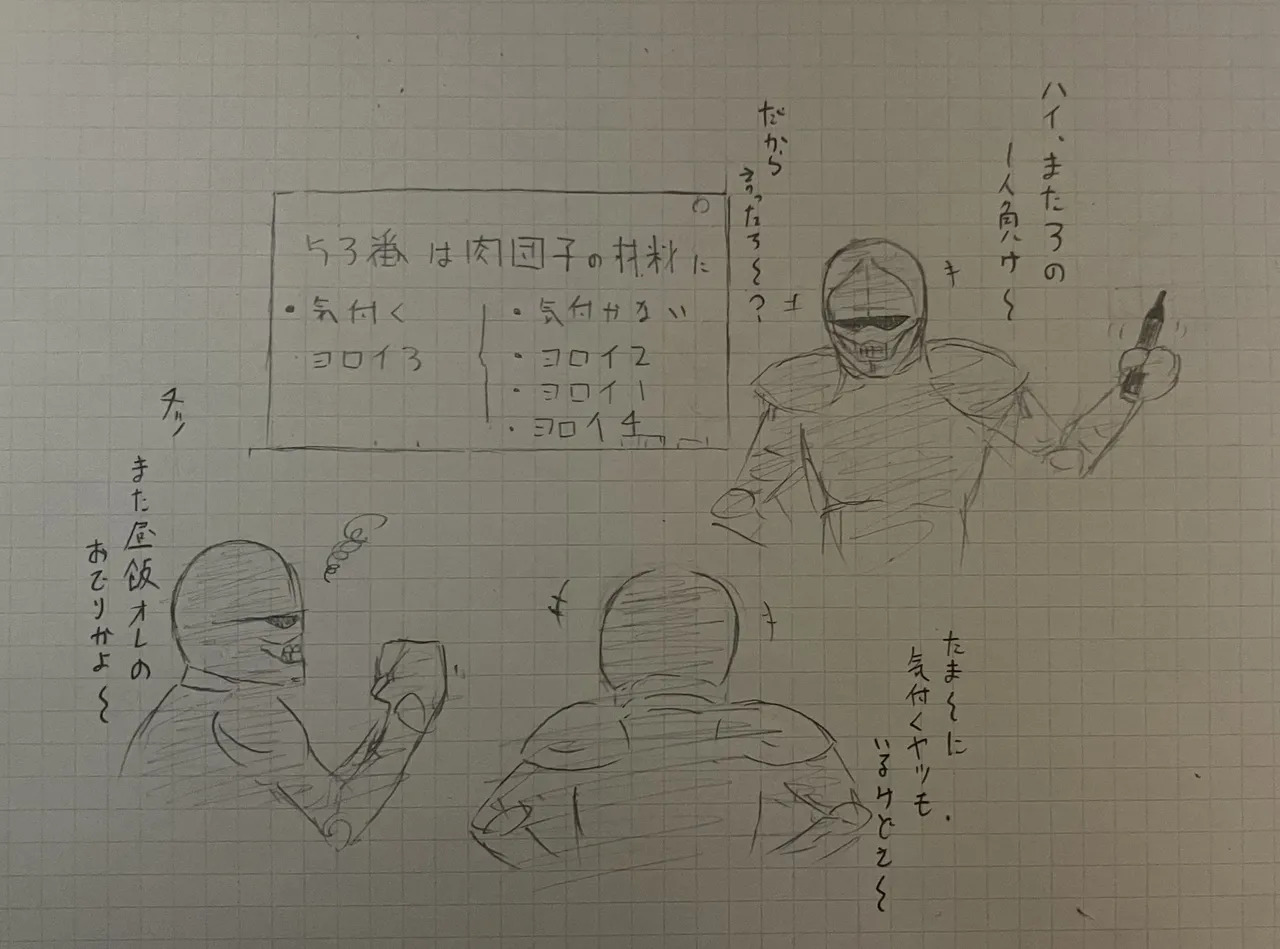 ハイ、また3の
1人負け〜
だから
言ったろ〜?
53番は肉団子の材料に
・気付く
ヨロイ3
・気付かない
・ヨロイ2
・ヨロイ1
・ヨロイ4
チッ
また昼飯オレの
おごりかよ〜
たま〜に
気付くヤツも
いるけどさ〜